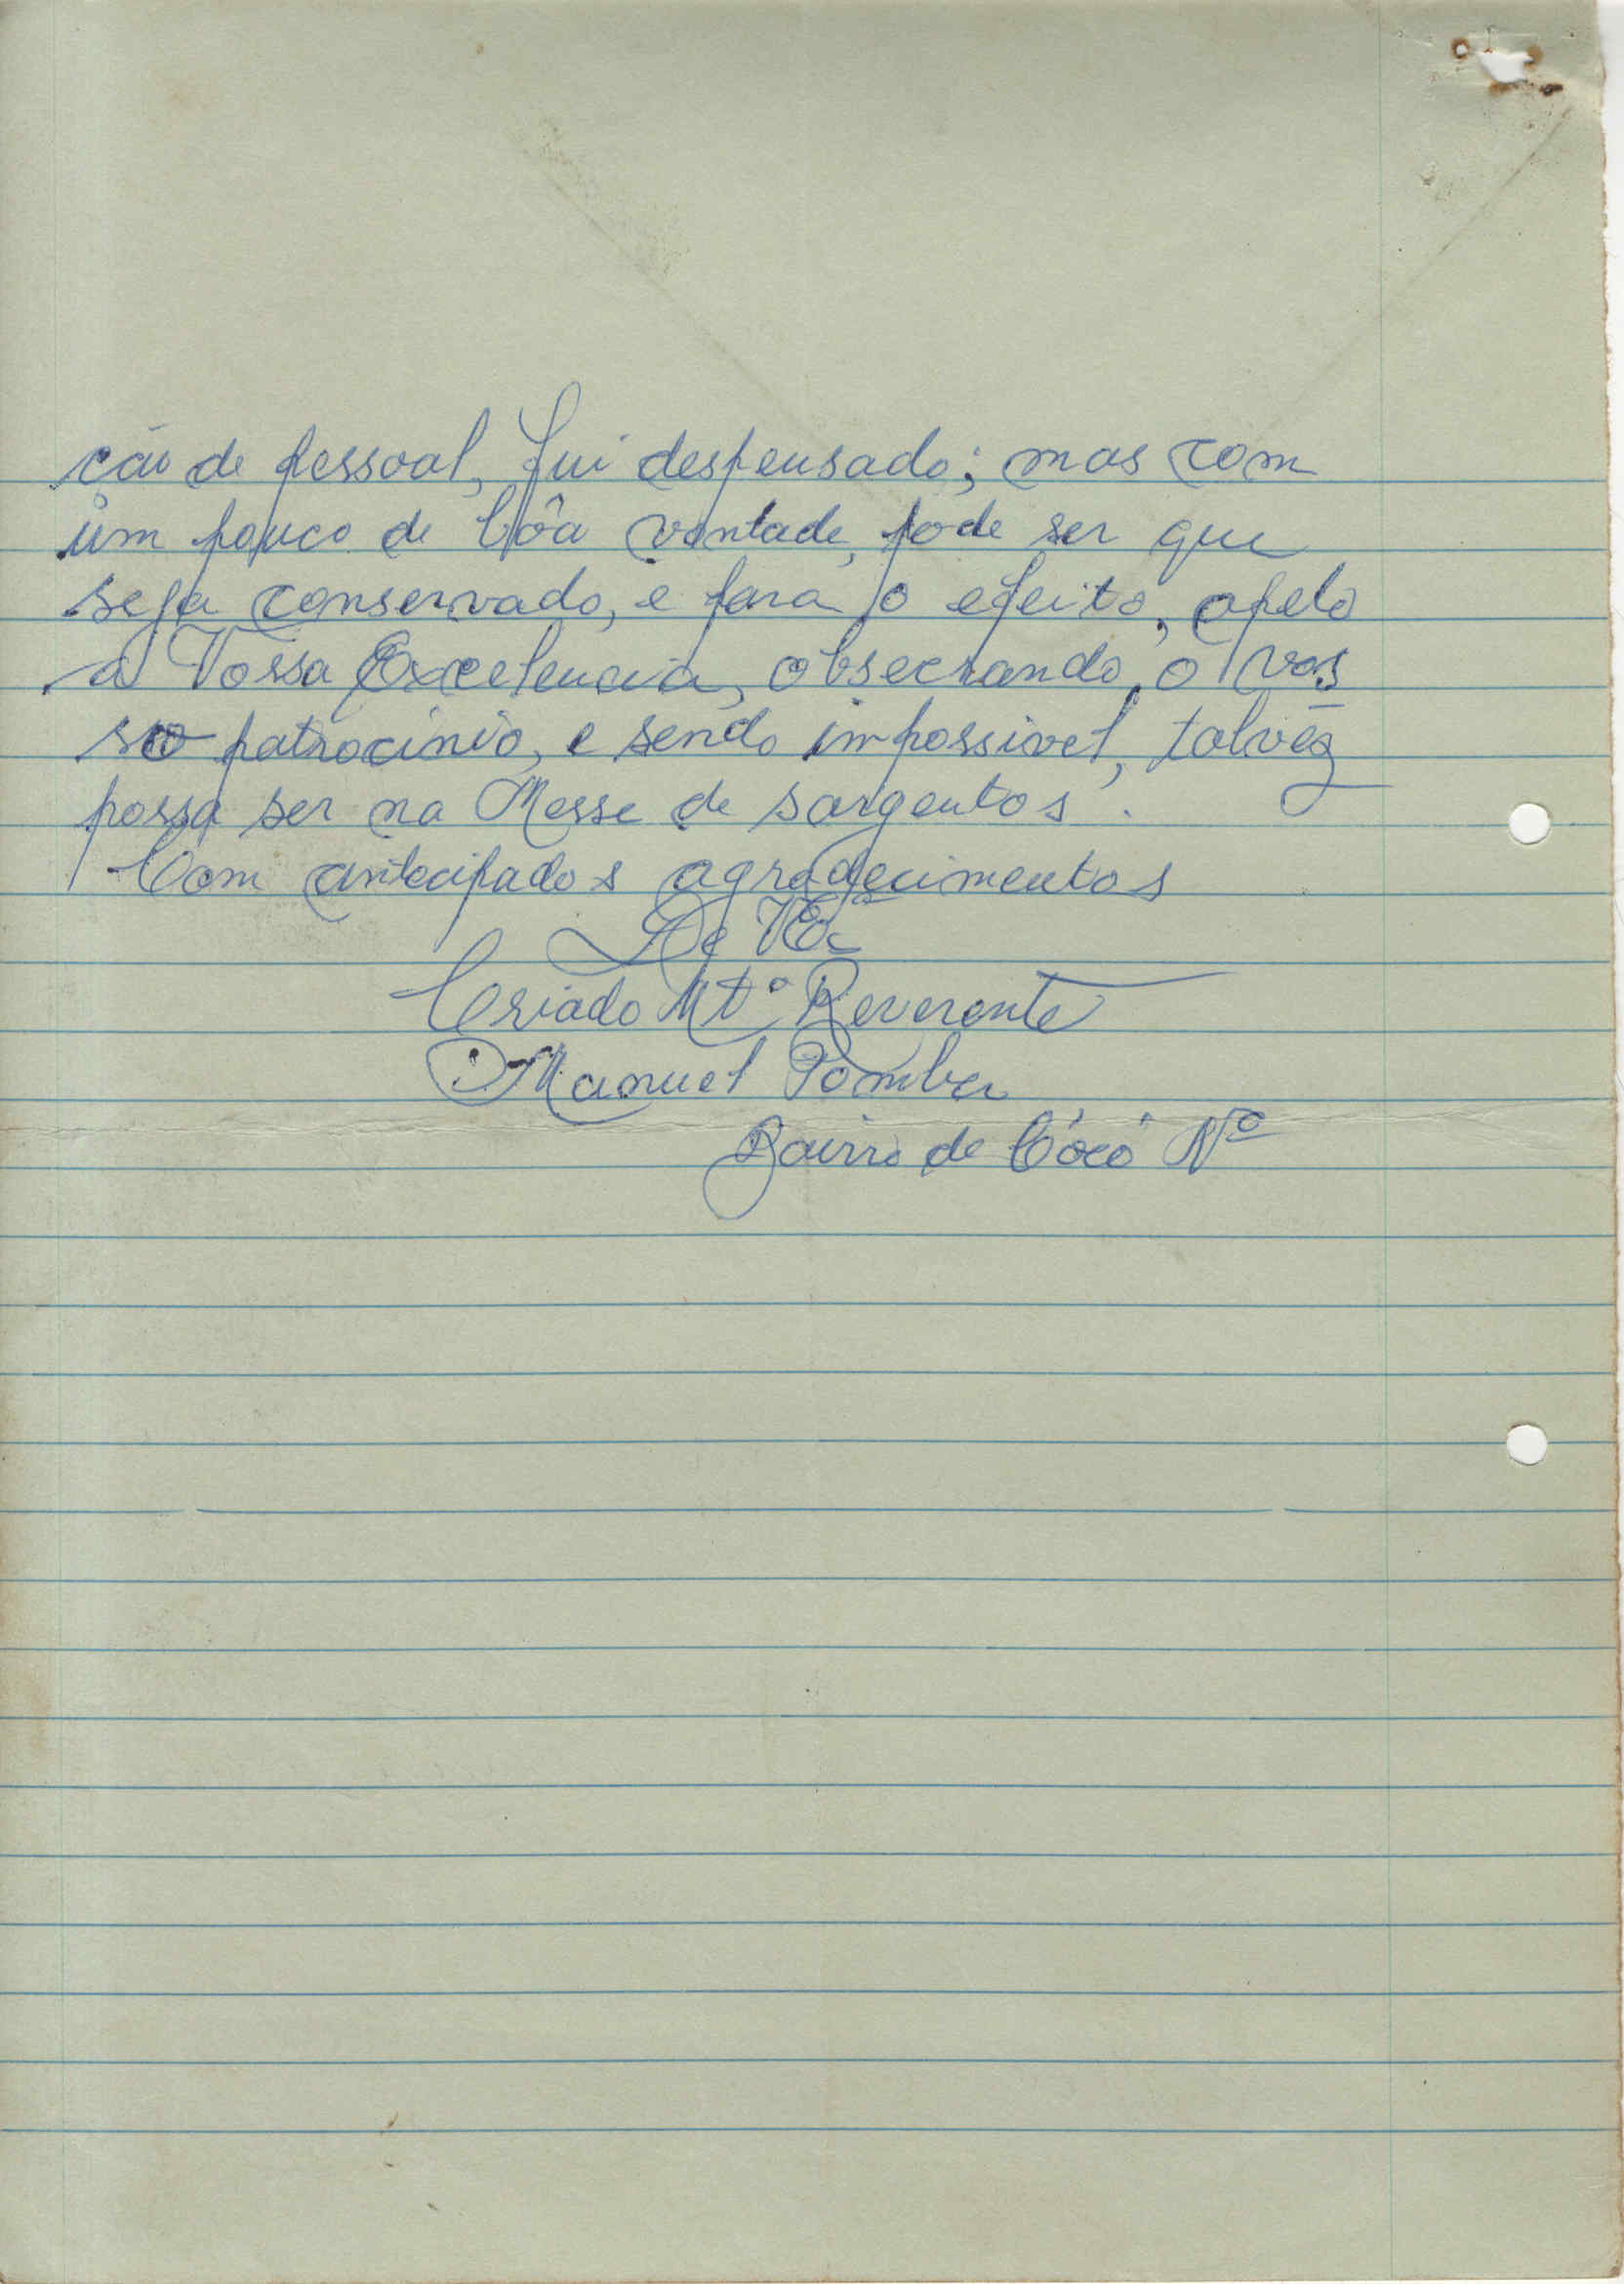 ção de pessoal, fui despensado; mas com
um pouco de bôa vontade, pode ser que
seja conservado, e para o efeito, apelo
a Vossa Excelencia, obsecrando, o vos
so patrocínio, e sendo impossivel, talvêz
possa ser na Messe de sargentos.
Com antecipados agradecimentos
De V. Exª
Criado Mtº Reverente
Manuel Pomba
Bairro de Cócó Nº